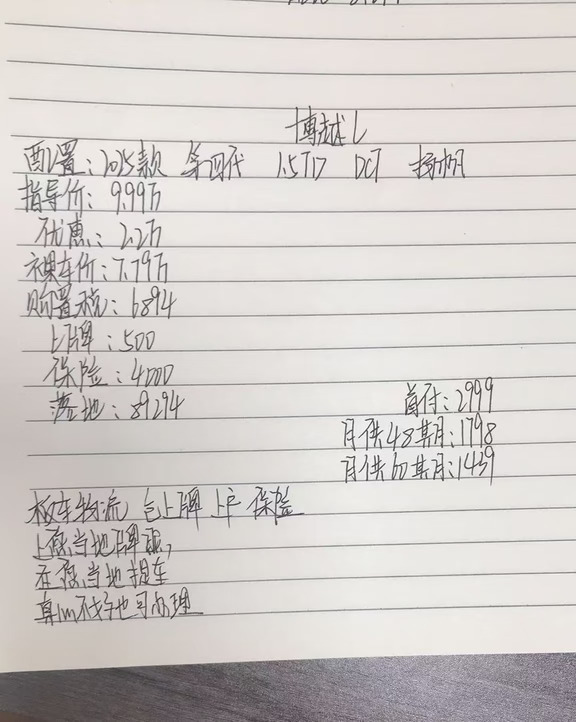 博越L
配置：2025款 第四代 1.5TD DCT 扬帆
指导价：9.99万
优惠：2.2万
裸车价：7.79万
购置税：6894
上牌：500
保险：4000
落地：89294
首付：2999
月供48期月：1798
月供60期月：1439
板车物流 包上牌 上户 保险
上您当地牌照，
在您当地提车
真心不好也可办理